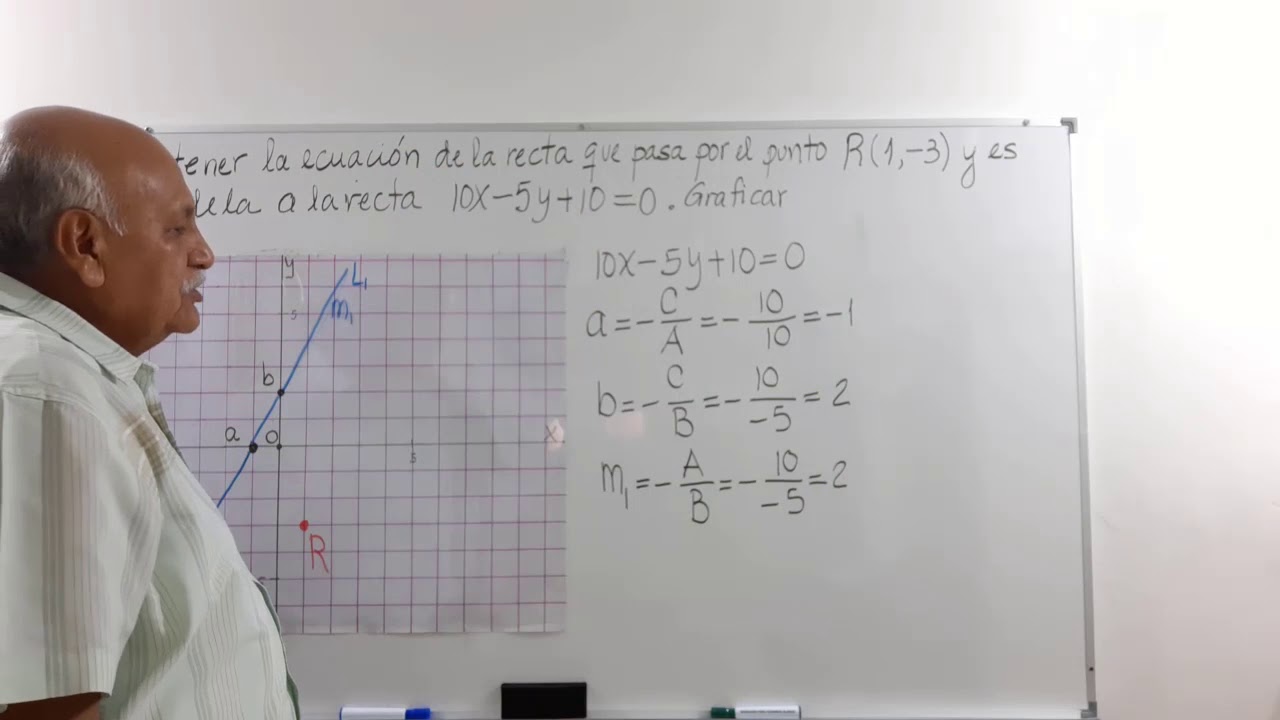 tener la ecuación de la recta que pasa por el punto R(1,-3) y es
lela a la recta 10x-5y+10=0. Graficar
y
L₁
m₁
5
b
a
0
x
5
R
10x-5y+10=0
a=-C/A=-10/10=-1
b=-C/B=-10/-5=2
m₁=-A/B=-10/-5=2